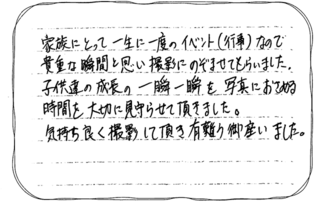 家族にとって一生に一度のイベント(行事)なので
貴重な瞬間と思い撮影にのぞませてもらいました。
子供達の成長の一瞬一瞬を写真におさめる
時間を大切に見守らせて頂きました。
気持ち良く撮影して頂き有難り御座いました。